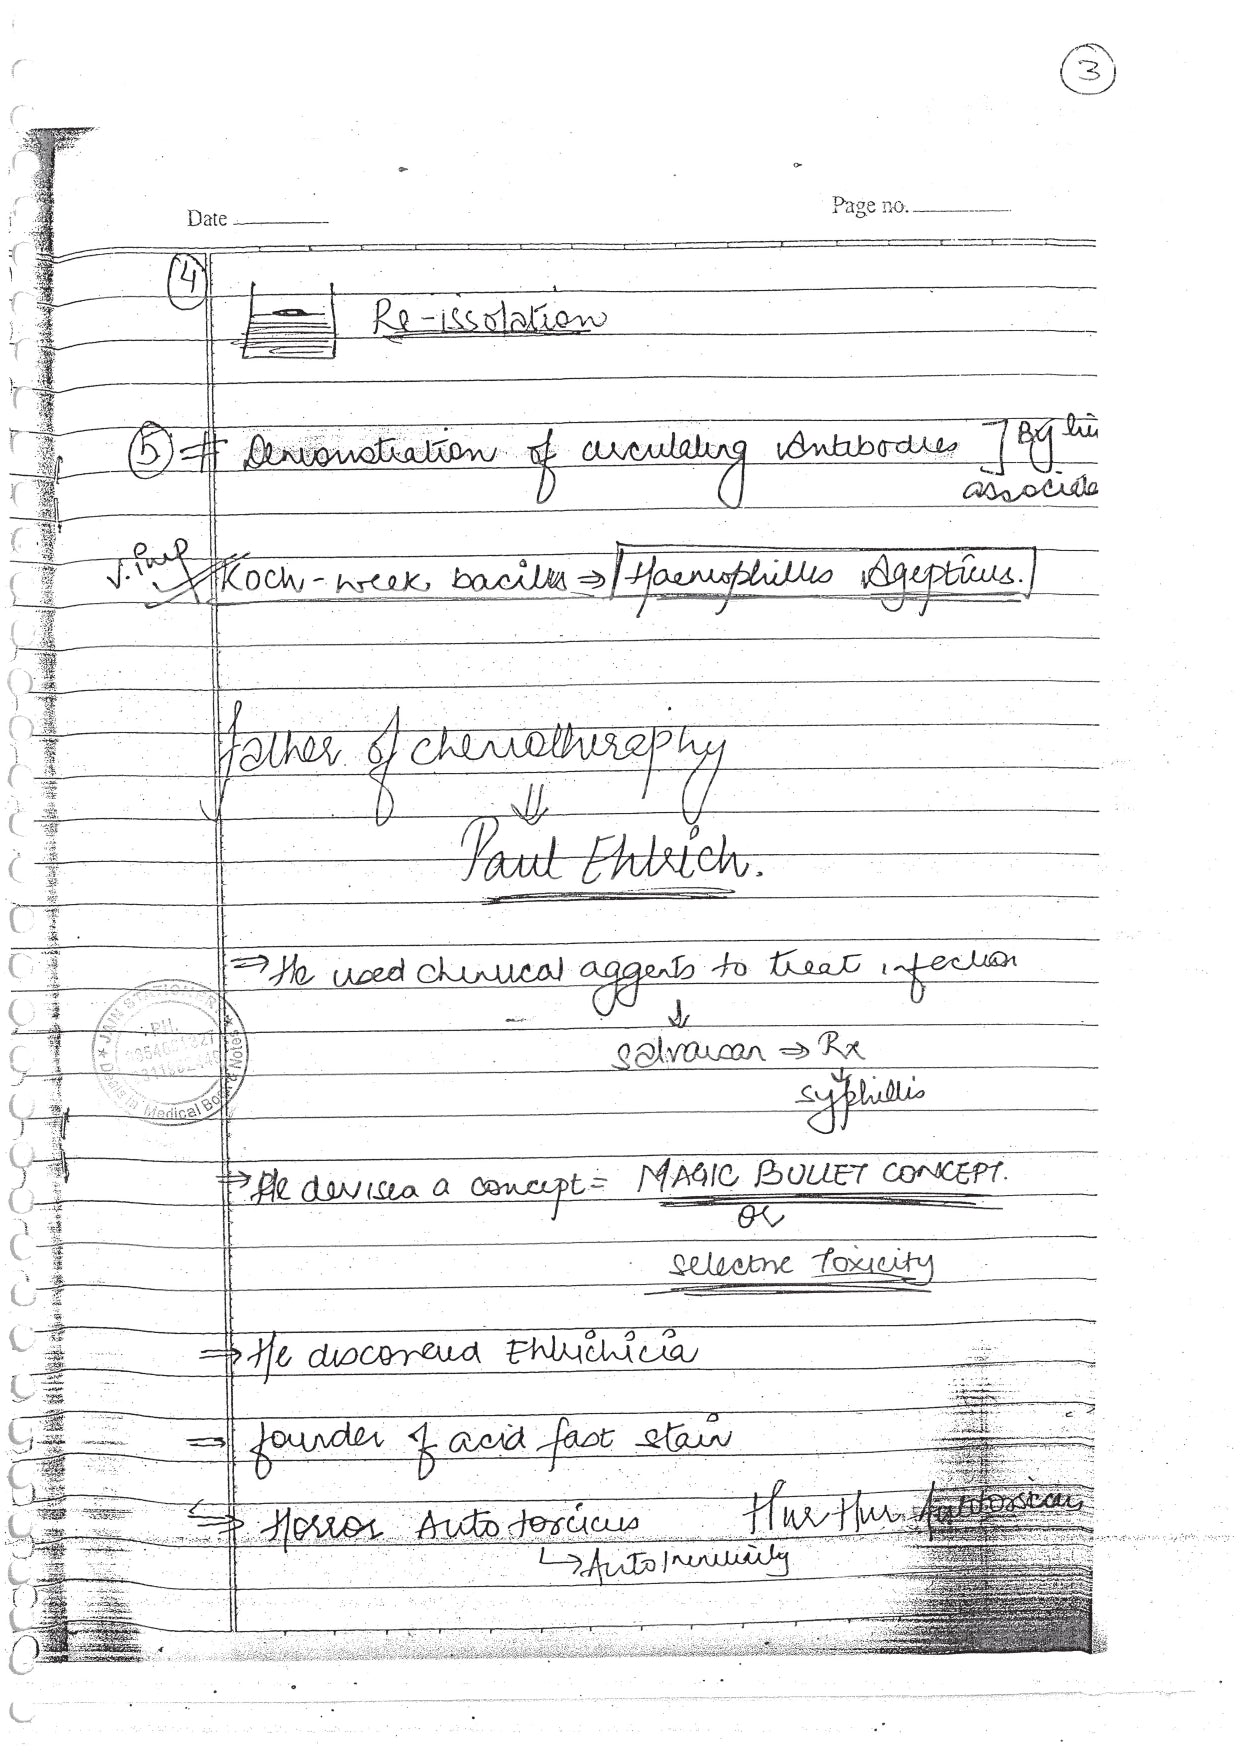 3
Date
Page no.
4
Re-issolation
5 ⇒ Demonstration of circulating Antibodies ] By
associate
V. Imp
Koch-week bacillus ⇒ Haemophillus Agepticus.
father of chemotheraphy
⇓
Paul Ehlrich.
⇒ He used chemical aggents to treat infection
↓
Salvarsan ⇒ Rx
↓
syphillis
⇒ He devised a concept = MAGIC BULLET CONCEPT.
or
selective Toxicity
⇒ He discovered Ehlrichicia
⇒ founder of acid fast stain
⇒ Horror Autotoxicus
↳ Auto Immunity
JAIN STATIONERS
PH.
Medical Notes